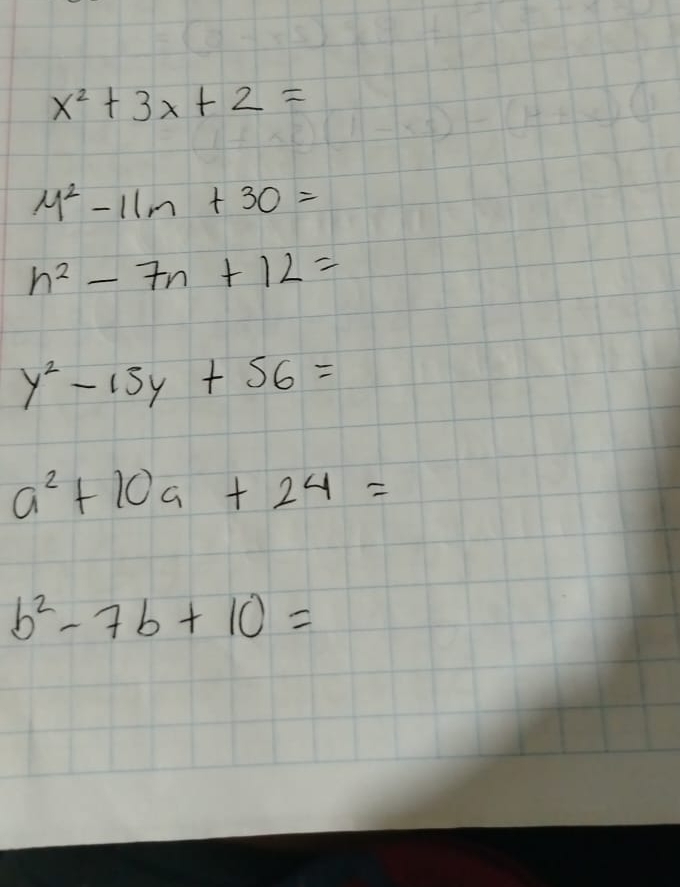 x² + 3x + 2 =
M² - 11m + 30 =
n² - 7n + 12 =
y² - 15y + 56 =
a² + 10a + 24 =
b² - 7b + 10 =